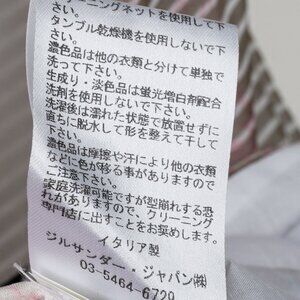 ーニングネットを使用して下
さい。
タンブル乾燥機を使用しないで下
さい。
濃色品は他の衣類と分けて単独で
洗って下さい。
生成り・淡色は蛍光増白剤配合
洗剤を使用しないで下さい。
洗濯後は濡れた状態で放置せずに
直ちに脱水して形を整えて干して
下さい。
濃色品は摩擦や汗により他の衣類
などに色が移る事がありますので
ご注意下さい。
家庭洗濯可能ですが型崩れする恐
れがありますので、クリーニング
専門店に出すことをお奨めします。
イタリア製
ジルサンダー・ジャパン㈱
03-5464-6720